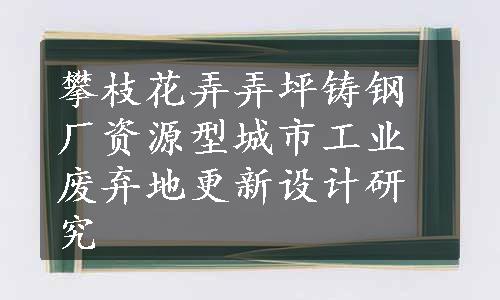 攀枝花弄弄坪铸钢
厂资源型城市工业
废弃地更新设计研
究